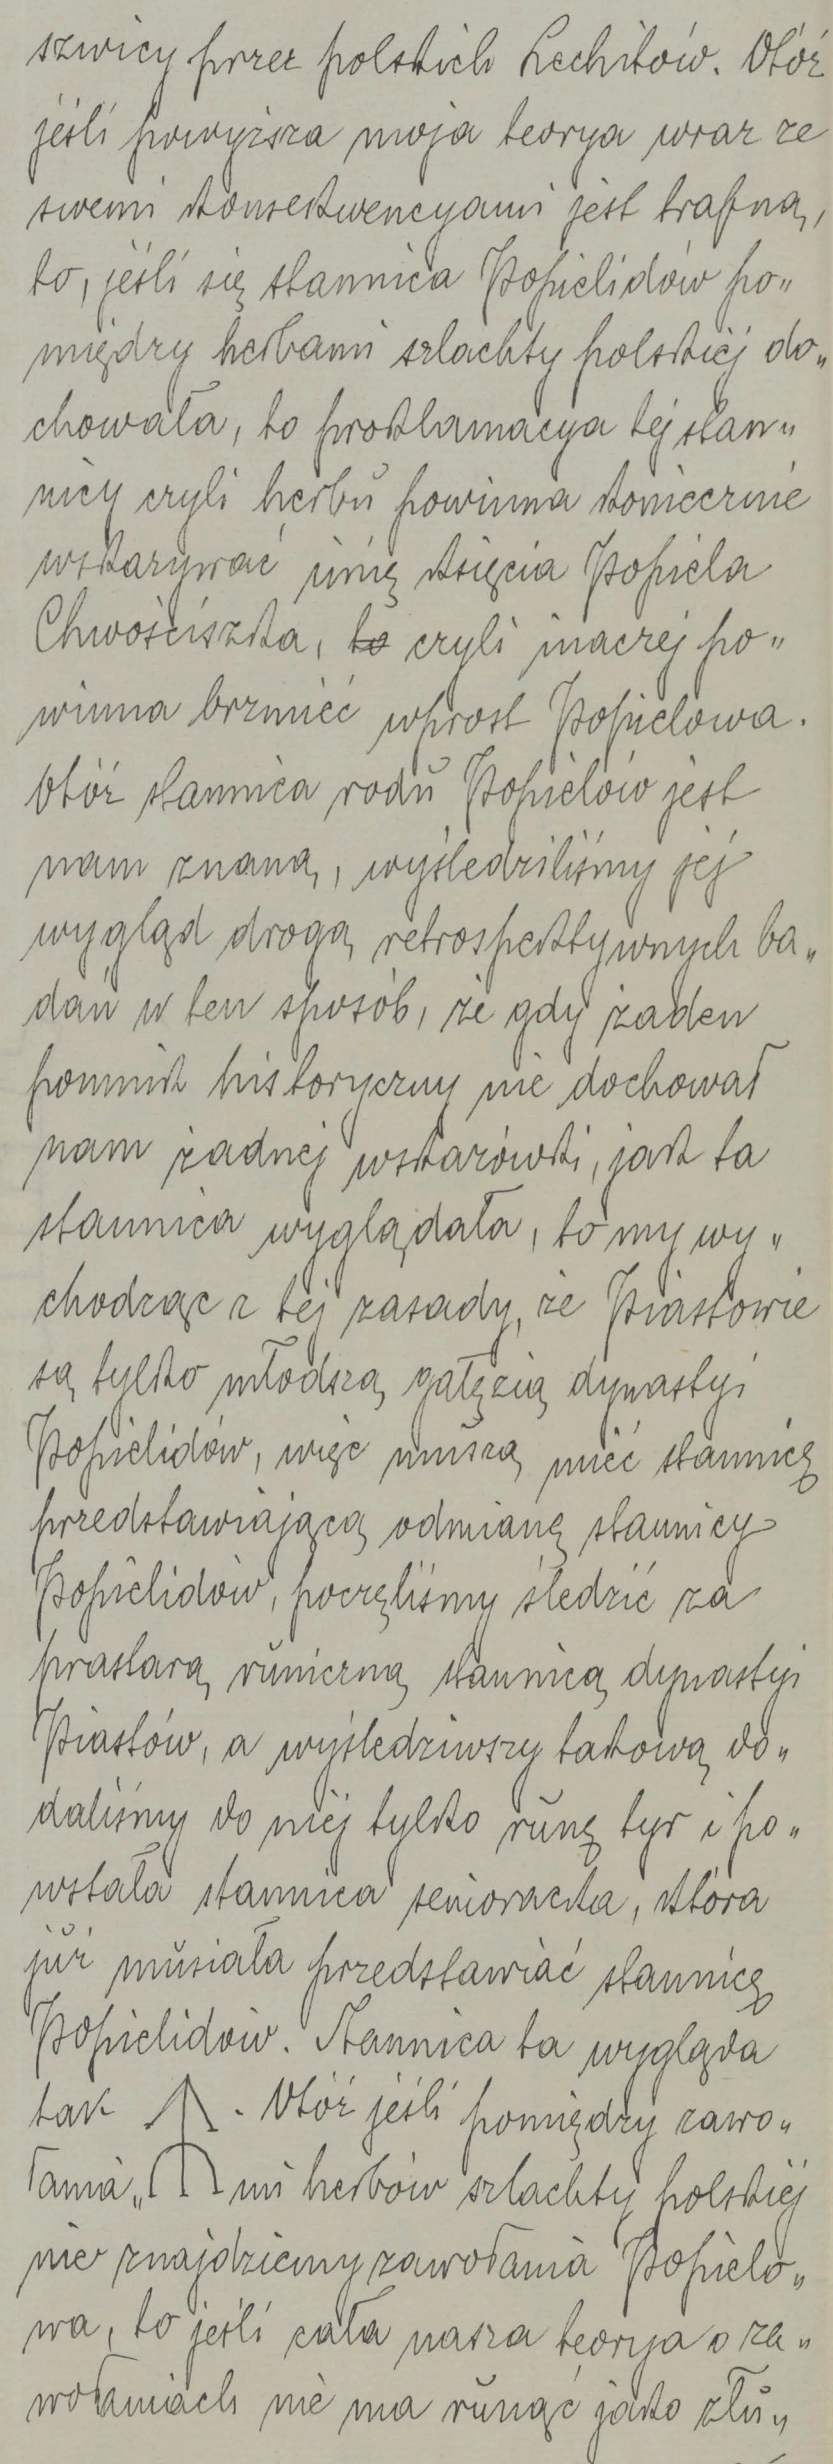 szwicy przez polskich Lechitów. Otóż
jeśli powyższa moja teorya wraz ze
swemi konsekwencyami jest trafną,
to, jeśli się stannica Popielidów po„
między herbami szlachty polskiéj do„
chowała, to proklamacya tej stan„
nicy czyli herbu powinna koniecznie
wskazywać imię księcia Popiela
Chwościszka, to czyli inaczej po„
winna brzmieć wprost Popielowa.
Otóż stannica rodu Popielów jest
nam znaną, wyśledziliśmy jéj
wygląd drogą retrospektywnych ba„
dań w ten sposób, że gdy żaden
pomnik historyczny nie dochował
nam żadnéj wskazówki, jak ta
stannica wyglądała, to my wy„
chodząc z tej zasady, że Piastowie
są tylko młodszą gałęzią dynastyi
Popielidów, więc muszą mieć stannicę
przedstawiającą odmianę stannicy
Popielidów, poczęliśmy śledzić za
prastarą runiczną stannicą dynastyi
Piastów, a wyśledziwszy takową do„
daliśmy do niéj tylko runę tyr i po„
wstała stannica senioracka, która
już musiała przedstawiać stannicę
Popielidów. Stannica ta wygląda
tak . Otóż jeśli pomiędzy zawo„
łania„ mi herbów szlachty polskiéj
nie znajdziemy zawołania Popielo„
wa, to jeśli cała nasza teorya o za„
wołaniach nie ma runąć jako złu„